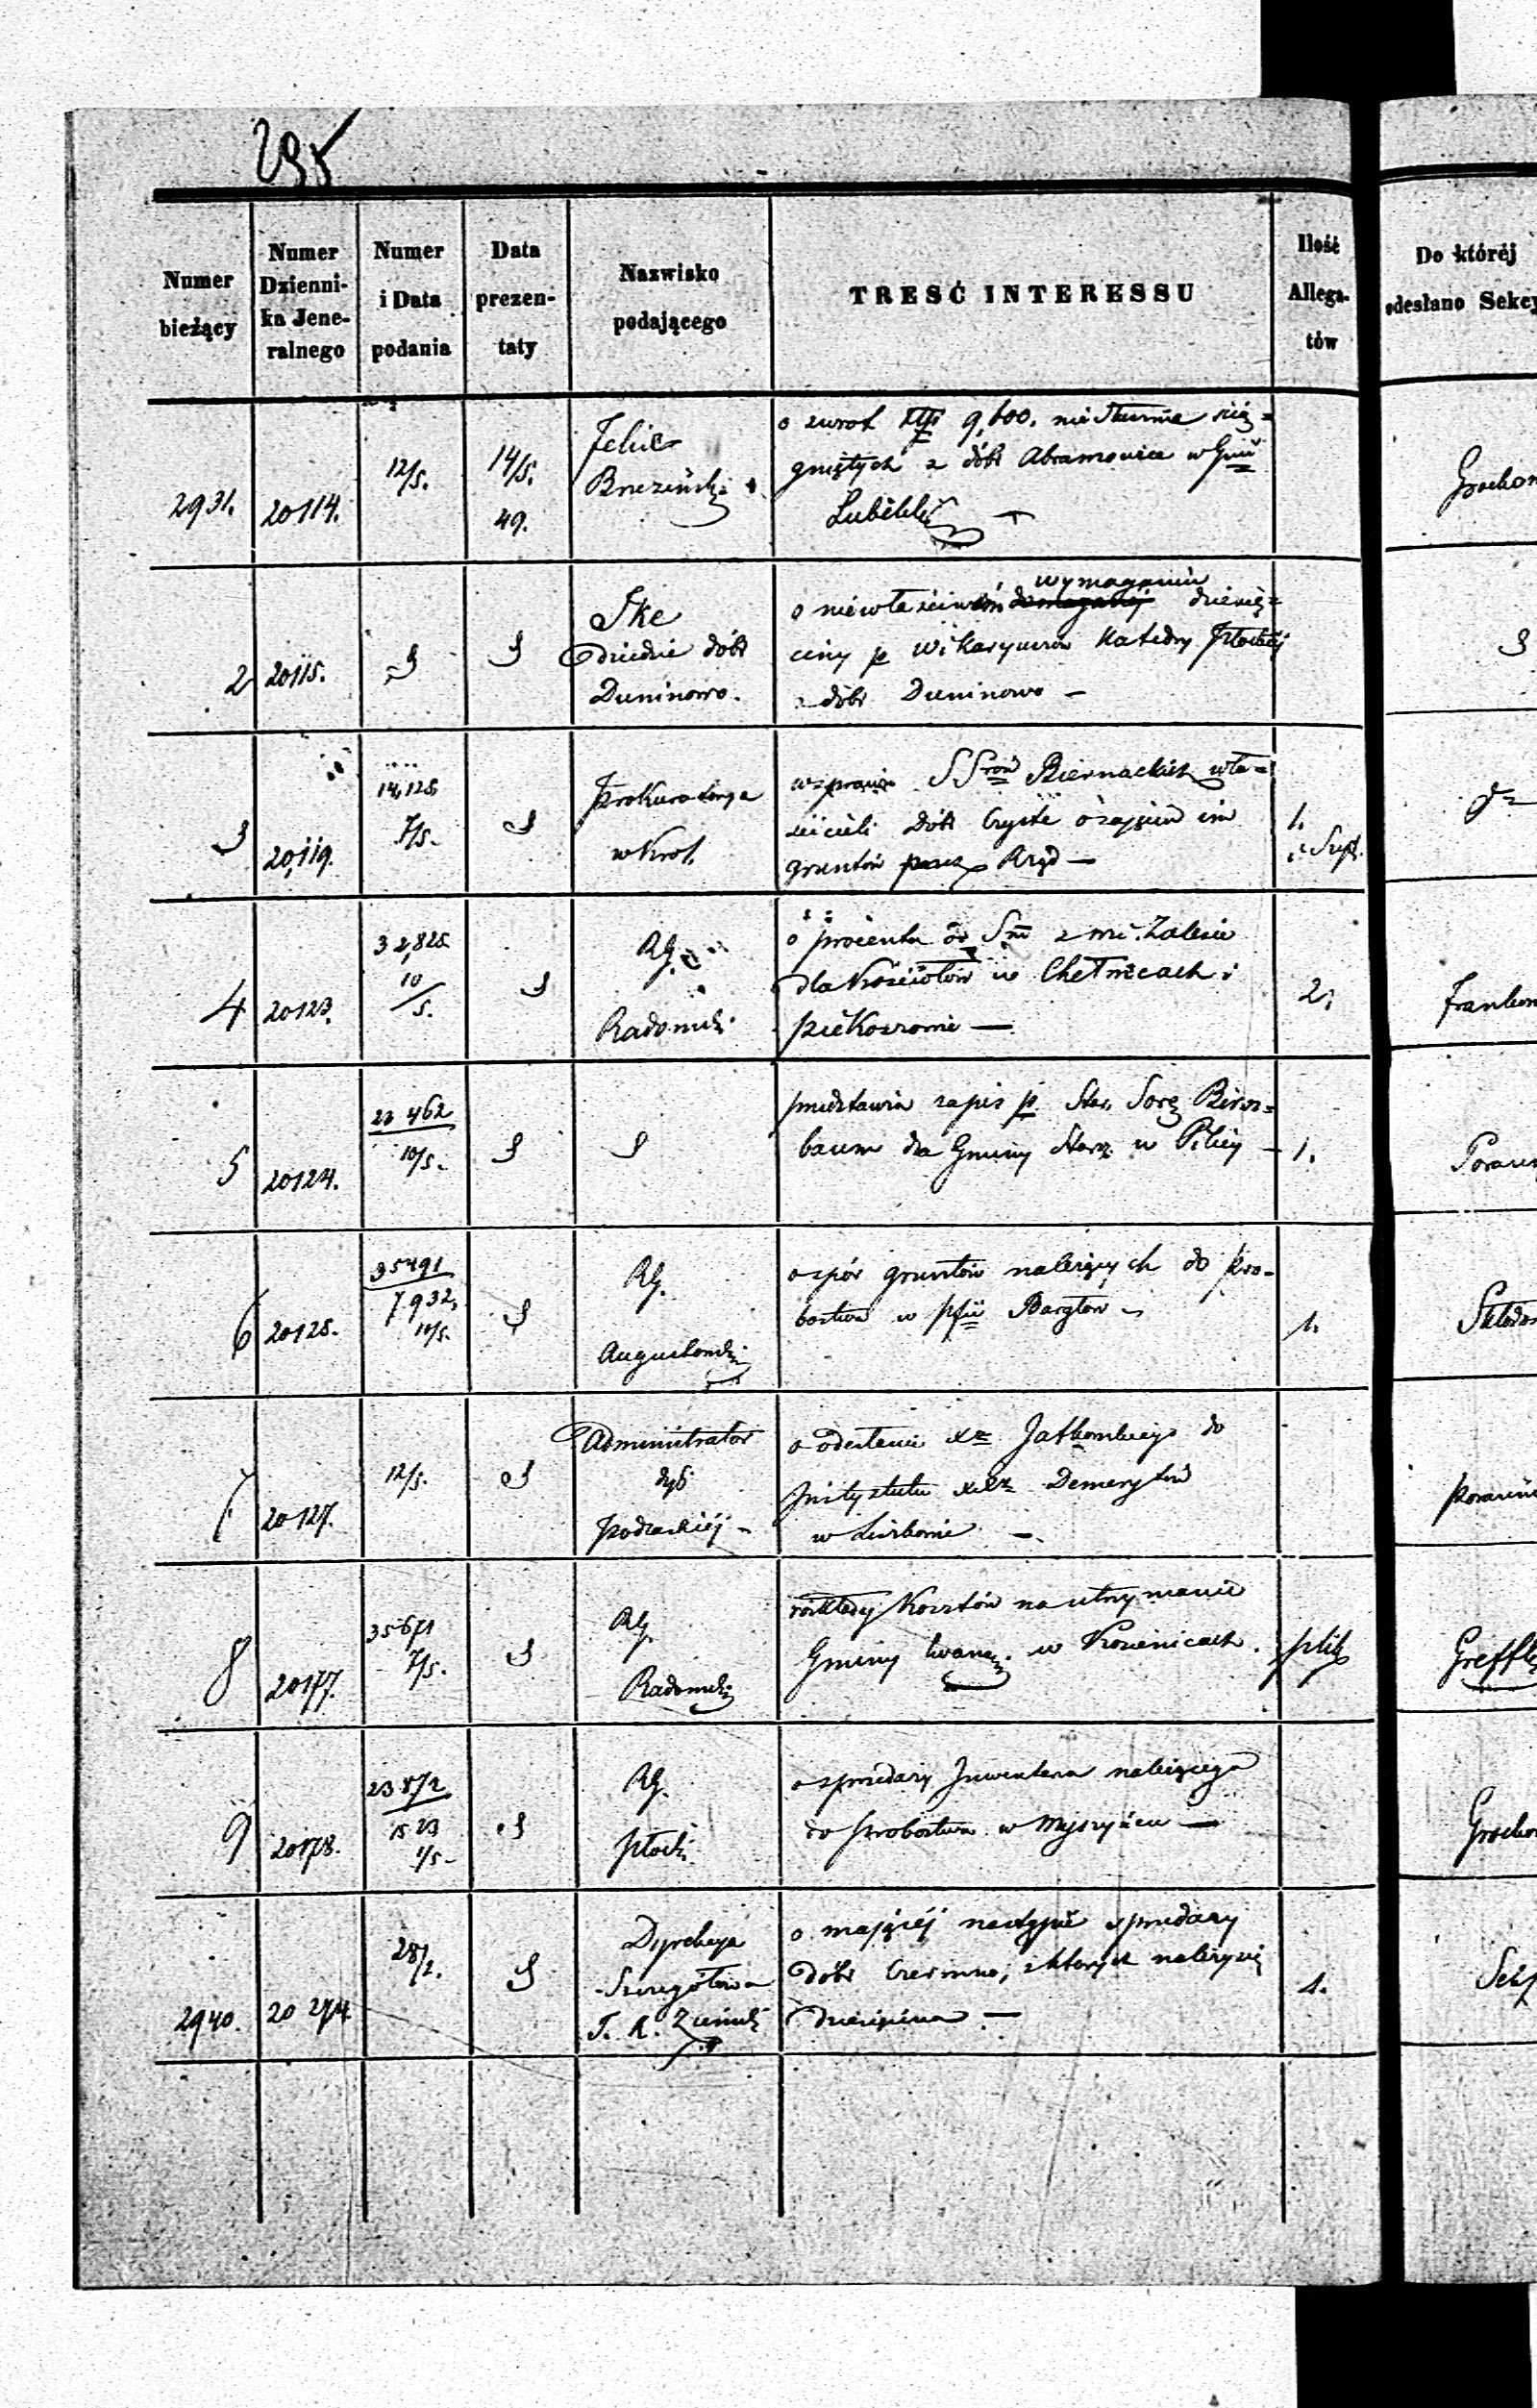 295
Numer bieżący
Numer Dzienni-
ka Jene-
ralnego
Numer
i Data
podania
Data
prezen-
taty
Nazwisko
podającego
TRESĆ INTERESSU
Ilość
Allega-
tów
Do któréj
odesłano Sekcy
2931. 20114. 12/5. 14/5. 49.
Felix
Brzeziński
o zwrot 9,600. niesłusznie ścią=
gniętych z dóbr Abramowice w Gnii
Lubelskiej —
2 20115.
Dziedzic dóbr
Duninowo.
o niewłaściwém wymaganiu dziesię=
ciny p Wikaryuszów Katedry Płockiej
z dóbr Duninowo —
3 20,119. 14,125 7/5.
Prokuratorya
w Król.
w sprawie SSrów Biernackich wła=
ścicieli dóbr Czyste o zajęcie im
gruntów przez Rząd —
1.
4 20123. 32,825 10/5.
RG.
Radomski
o procenta od Sm z mci. Zalesie
dla Kościołów w Chełmcach i
Piekoszowie —
2.
5 20124. 23 462 10/5.
przedstawia zapis p. Star. Sorę Birn=
baum dla Gminy Starz. w Pilicy —
1.
6 20125. 35491 7932, 10/5.
RG.
Augustowski
o spór gruntów należących do pro-
bostwa w pfii Bargłow —
1.
7 20127. 12/5.
Administrator
dyć.
Podlaskiéj —
o odesłanie Xa Jatkowskiego do
Instytutu Demerytów
w Liszkowie —
8 20177. 35671 7/5.
RG.
Radomski
rozkłady Kosztów na utrzymanie
Gminy Ewang. w Kozienicach.
plik
9 20178. 23872 1523 1/5.
RG.
Płocki
o sprzedaży Inwentarza należącego
do probostwa w Myszyńcu —
2940. 20 274. 28/2.
Dyrekcya
Szczegółowa
T. K. Ziemski
o mającéj nastąpić sprzedaży
dóbr Czermno, z których należy się
dziesięcina —
1.